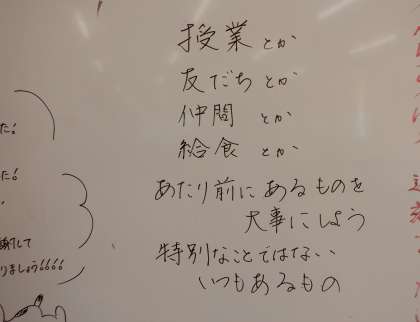 授業とか
友だちとか
仲間とか
給食とか
あたり前にあるものを
大事にしよう
特別なことではない
いつもあるもの
た!
た!
謝して
りましょう!!!!